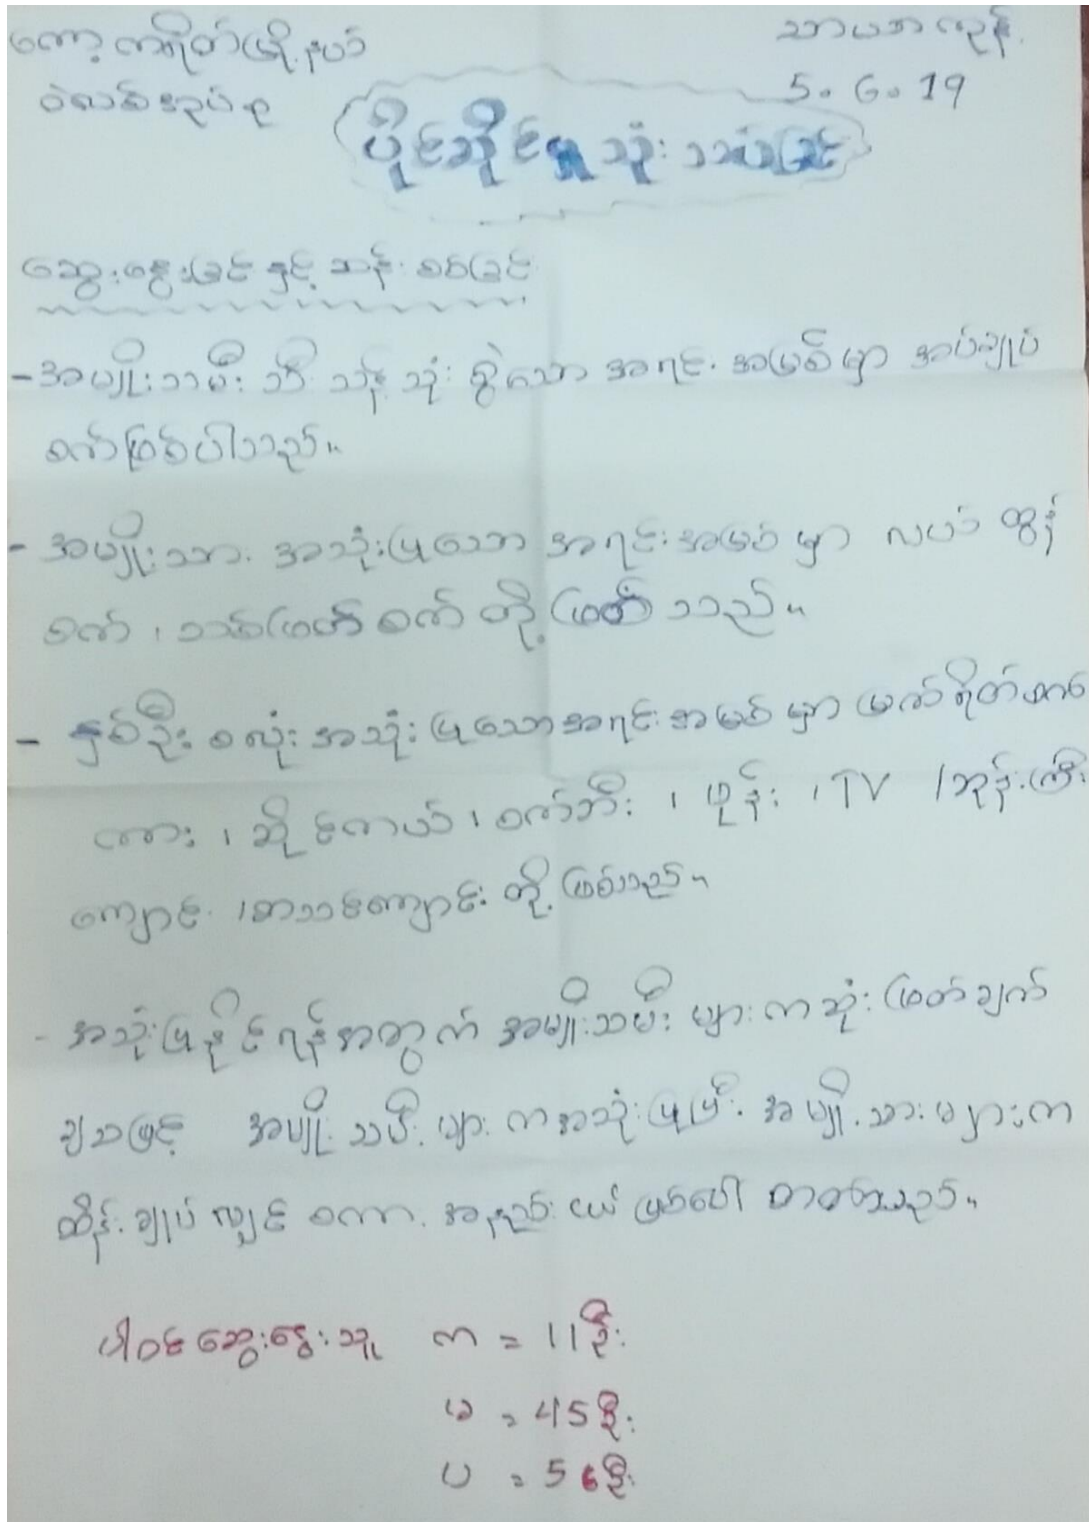 ကော့ကရိတ်မြို့နယ် သာယာကုန်း
ဝဲလစ်အုပ်စု 5.6.19
ပိုင်ဆိုင်မှု သုံးသပ်ခြင်း
ဆွေးနွေးခြင်း နှင့် ဆန်းစစ်ခြင်း
- အမျိုးသမီး သီးသန့် သုံးစွဲသော အရင်းအမြစ်မှာ အပ်ချုပ်
စက်ဖြစ်ပါသည်။
- အမျိုးသား အသုံးပြုသော အရင်းအမြစ်မှာ လယ်ထွန်
စက်၊ သစ်ဖြတ်စက် တို့ဖြစ်သည်။
- နှစ်ဦးစလုံး အသုံးပြုသောအရင်းအမြစ်မှာ မြက်ရိတ်စက်
ကား၊ ဆိုင်ကယ်၊ စက်ဘီး၊ ဖုန်း၊ TV ၊ဘုန်းကြီး
ကျောင်း ၊စာသင်ကျောင်း တို့ဖြစ်သည်။
- အသုံးပြုနိုင်ရန်အတွက် အမျိုးသမီးများက ဆုံးဖြတ်ချက်
ချသဖြင့် အမျိုးသမီးများကအသုံးပြုပြီး အမျိုးသားများက
ထိန်းချုပ်လျှင် စကား အနည်းငယ် ဖြစ်ပေါ် တတ်သည်။
ပါဝင်ဆွေးနွေးသူ က = 11 ဦး
မ = 45 ဦး
ပ = 56 ဦး